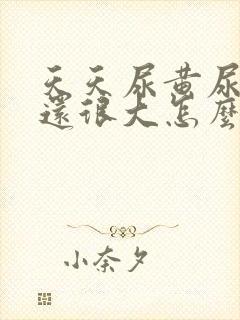 天天尿黄尿
還很大怎麼
小奈夕